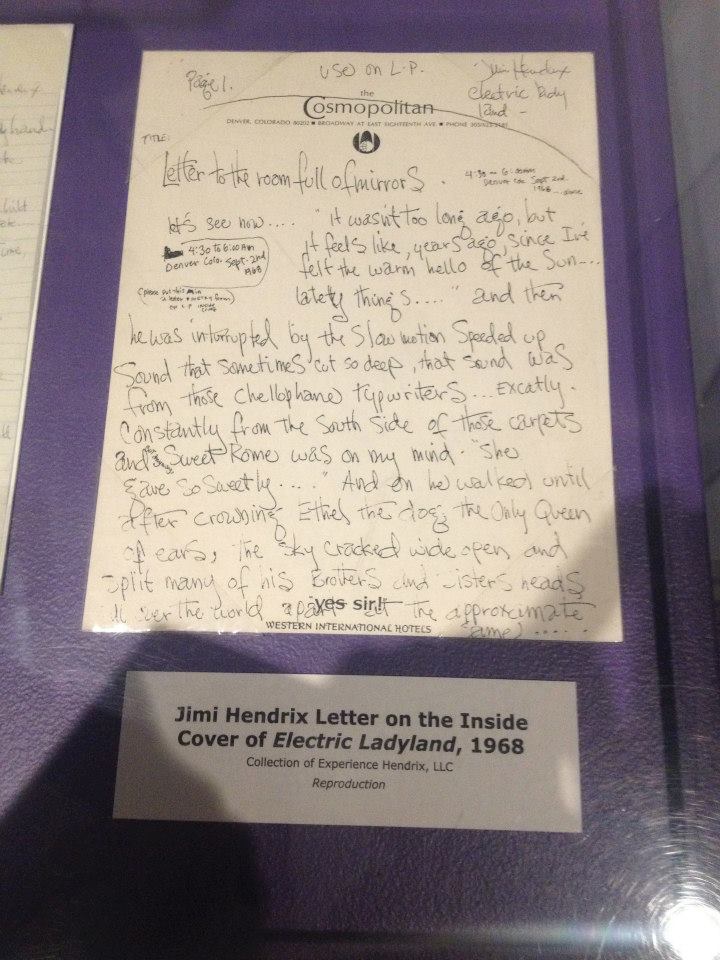 Page 1.
USE on L.P.
Jimi Hendrix
electric lady
land -
the
Cosmopolitan
DENVER, COLORADO 80202 ■ BROADWAY AT EAST EIGHTEENTH AVE. ■ PHONE
TITLE:
Letter to the room full of mirrors.
4:30 - 6:00AM
Denver Colo. Sept. 2nd
1968
let's see now.... "it wasn't too long ago, but
it feels like, years ago, since I've
felt the warm hello of the Sun---
lately things...." and then
4:30 to 6:00AM
Denver Colo. Sept. 2nd
1968
(please put this in
a letter form)
on L.P. inside
he was intorrupted by the Slow motion Speeded up
Sound that sometimes cut so deep, that sound was
from those chellophane typwriters...Excatly.
Constantly from the South Side of those carpets
and Sweet Rome was on my mind. "She
gave so Sweetly...." And on he walked until
after crowning Ethel the dog, the Only Queen
of ears, the sky cracked wide open and
split many of his Brothers and Sisters heads
all over the world apart at the approximate
same) ......
yes sir!
WESTERN INTERNATIONAL HOTELS
Jimi Hendrix Letter on the Inside
Cover of Electric Ladyland, 1968
Collection of Experience Hendrix, LLC
Reproduction